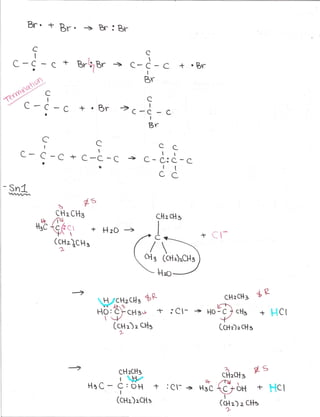 Br• + Br• → Br : Br
C C
C - C - C + Br : Br → C - C - C + • Br
Br
Termination
C C
C - C - C + • Br → C - C - C
Br
C C C C
C - C - C + C - C - C → C - C : C - C
C C
- Sn1
3 S
CH2CH3 CH2CH3
H3C - C - Cl + H2O → C + Cl-
(CH2)2CH3 CH3 (CH2)2CH3
2 H2O
→ H CH2CH3 R CH2CH3 R
HO : C - CH3 + :Cl- → HO - C - CH3 + HCl
(CH2)2 CH3 (CH2)2 CH3
2
→ CH2CH3 3 S
H CH2CH3
H3C - C - OH + :Cl- → H3C - C - OH + HCl
(CH2)2CH3 (CH2)2 CH3
2